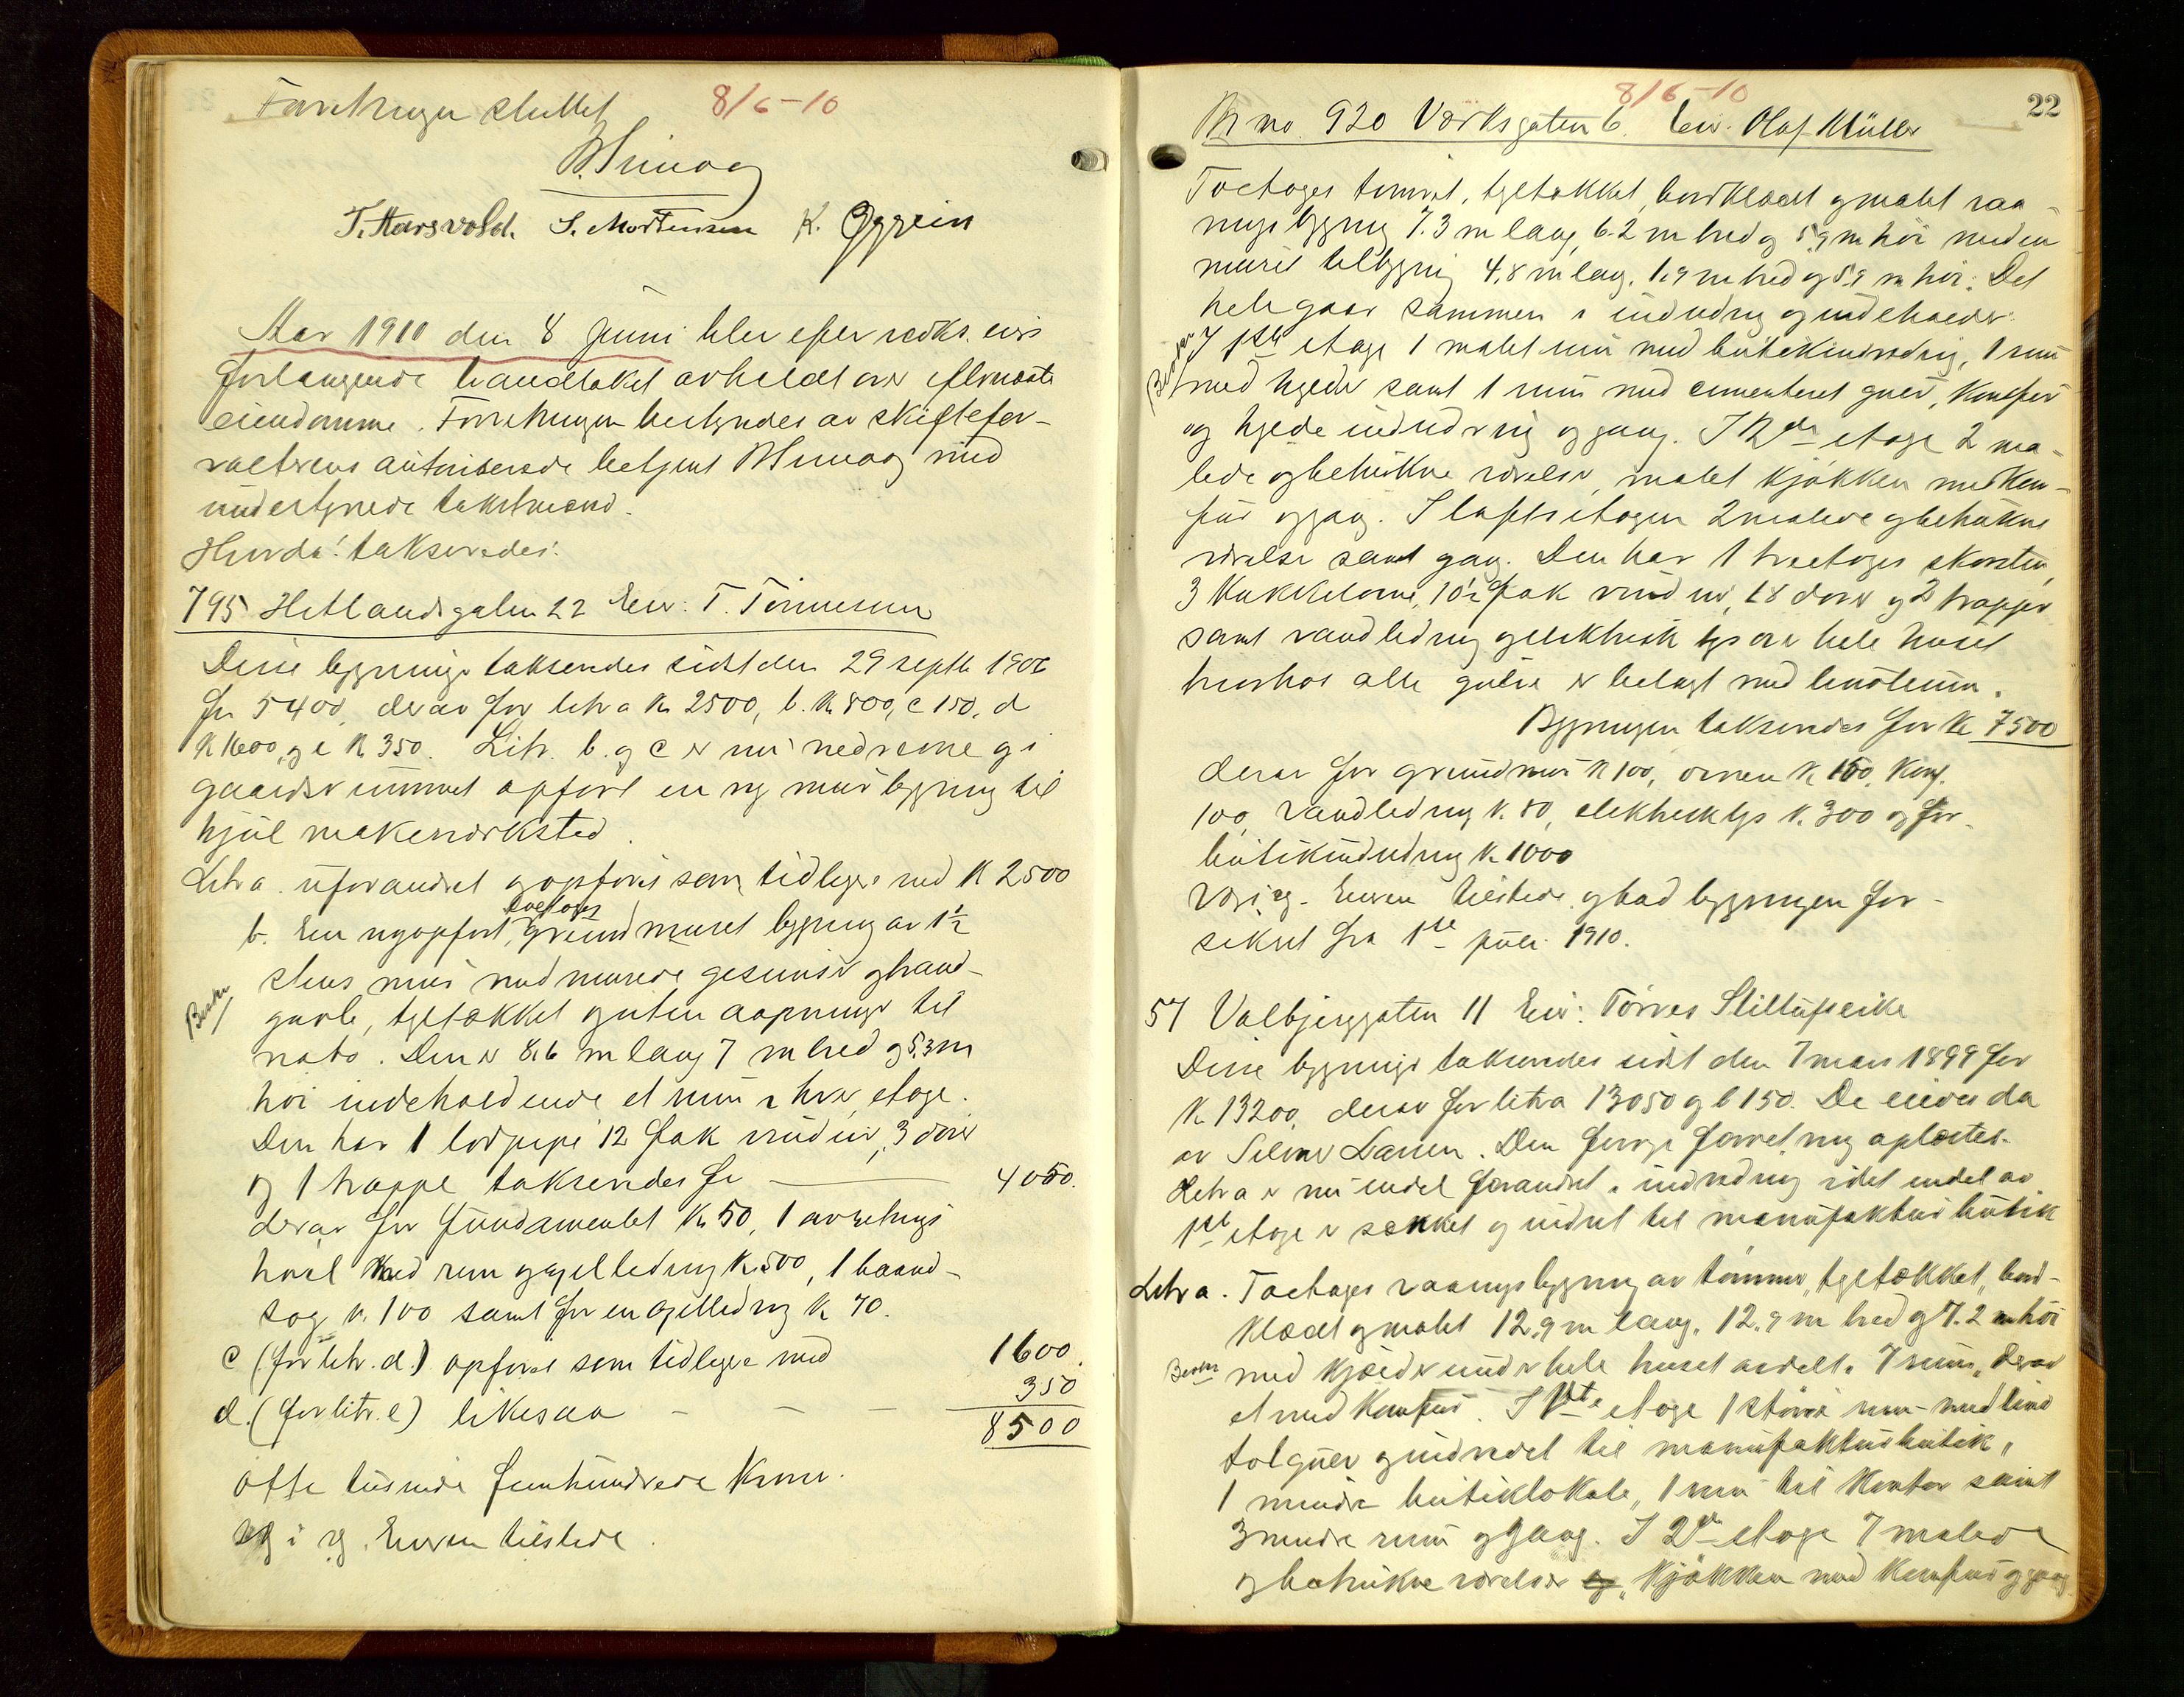 Forretningen sluttet 8/6-10
T. Aarsvold. S. Mortensen K. Oggein
Aar 1910 den 8 juni blev efter vedk. eiers
forlangende branntakst avholdt over eftnævnte
eiendomme. Forretningen bestyredes av skiftefor-
valterens autoriserede betjent med
undertegnede takstmænd.
Herda! takseredes:
795 Hetlandsgaten 22 Eier: T. Tönnesen
Disse bygninger takseredes sidst den 29 septb 1906
for 5400, derav for litra a Kr 2500, b. Kr 800, c 150, d
Kr 1600, og e Kr 350. Litr. b. og c er nu nedrevne og i
gaardsrummet opført en ny murbygning til
hjulmakerverksted.
Litr a. uforandret og opføres som tidligere med Kr 2500
toetages
b. En nyopført, grundmuret bygning av 1½
stens mur med murede gesimser og brand-
Beskr
gavle, tegltækket og uten aapninger til
nabo. Den er 8,6 m lang 7 m bred og 5,3 m
høi indeholdende et rum i hver etage.
Den har 1 lodpipe 12 fak vinduer, 3 dører
og 1 trappe takseredes for 4050.
derav for fundamentet Kr 50, 1 avretnings
høvl med rem og ledning Kr. 500, 1 baand-
sag Kr. 100 samt for en ledning Kr 70.
c (før litr. d.) opføres som tidligere med 1600.
d. (før litr. e) likesaa - - - 350
8500
otte tusinde femhundrede Kroner.
i rg. Eieren tilstede.
8/6-10 22
Br no. 920 Verksgaten 6. Eier. Olaf Müller
Toetages tømret, tegltækket, bordklædt og malet vaa-
ningsbygning 7.3 m lang, 6.2 m bred og 5,9 m høi med en
muret tilbygning 4,8 m lang, 1,9 m bred og 5,9 m høi. Det
hele gaar sammen i indredning og indeholder:
I 1ste etage 1 malet rum med butikindredning, 1 rum
med hylder samt 1 rum med cementeret gulv, Komfur
og hylde indredning og gang. I 2den etage 2 ma-
lede og betrukne værelser, malet kjøkken med Kom-
fur og gang. I loftsetagen 2 malede og betrukne
værelser samt gang. Den har 1 treetages skorsten,
3 Kakkelovne, 10½ fak vinduer, 18 dører og 2 trapper
samt vandledning og elektrisk lys over hele huset
hvorhos alle gulve er belagt med linoleum.
Bygningen takseredes for Kr 7500
derav for grundmur Kr 100, ovnene Kr 100, Komf.
100, vandledning Kr. 80, elektrisk lys Kr. 300 og for
butikindredning Kr 1000
Eieren tilstede og bad bygningen for-
sikret fra 1ste juli 1910.
57 Valbjerggaten 11 Eier: Törres Stillufseike
Disse bygninger takseredes sidst den 7 mars 1899 for
Kr. 13200, derav for litr a 13050 og b 150. De eiedes da
av Selmer Larsen. Den forrige forretning oplæstes.
Litr a er nu endel forandret i indredning idet endel av
1ste etage er sænket og indret til manufakturbutik
Litr a. Toetages vaaningsbygning av tømmer, tegltækket, bord-
klædt og malet 12,9 m lang, 12,9 m bred og 7.2 m høi
Beskr med kjelder under hele huset avdelt i 7 rum, derav
et med Komfur. I 1ste etage 1 större rum med lino
og indredet til manufakturbutik,
1 mindre butiklokale, 1 rum til Kontor samt
3 mindre rum og gang. I 2den etage 7 malede
og betrukne værelser, Kjøkken med Komfur og gang